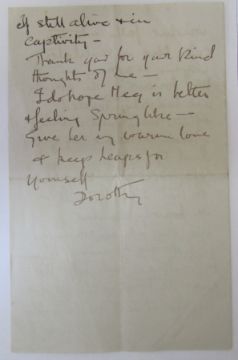 if still alive & in
captivity —
Thank you for your kind
thoughts of me —
I do hope Meg is better
& feeling Springlike —
Give her my warm love
& keep heaps for
yourself
Dorothy